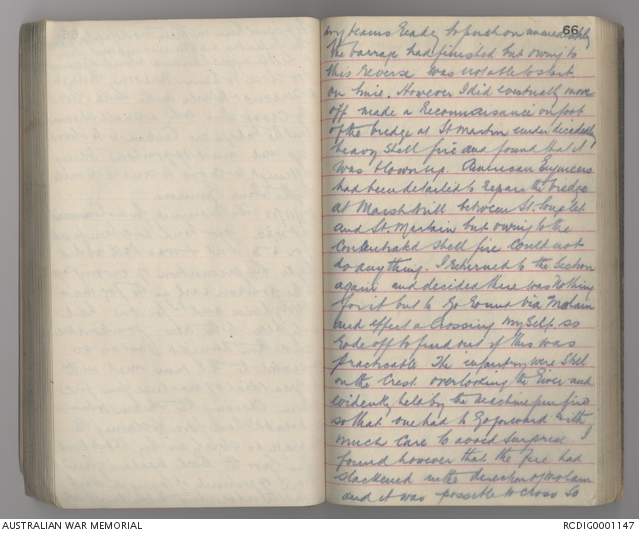 66
my teams ready to push on immediately
the barrage had finished but owing to
this reverse was not able to start
on time. However I did eventually move
off made a Reconnaisance on foot
of the bridge at St Martin under decidedly
heavy shell fire and found that it
was blown up. American Engineers
had been detailed to repair the bridge
at Marsh Mill between St. Souplet
and St. Martain but owing to the
concentrated shell fire could not
do anything. I returned to the Section
again and decided there was nothing
for it but to go round via Molain
and effect a crossing myself. so
rode off to find out if this was
practicable The infantry were still
on the crest overlooking the River and
evidently held by the machine gun fire
so that one had to go forward with
much care to avoid surprise I
found however that the fire had
slackened in the direction of Molain
and it was possible to cross so
AUSTRALIAN WAR MEMORIAL
RCDIG0001147